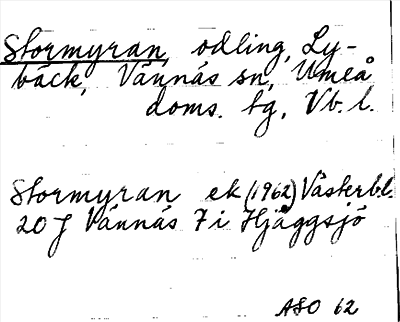 Stormyran, odling, Ly-
bäck, Vännäs sn, Umeå
doms. tg, Vb. l.
Stormyran ek (1962) Västerb.l.
20 J Vännäs 7 i Hjäggsjö
ASO 62